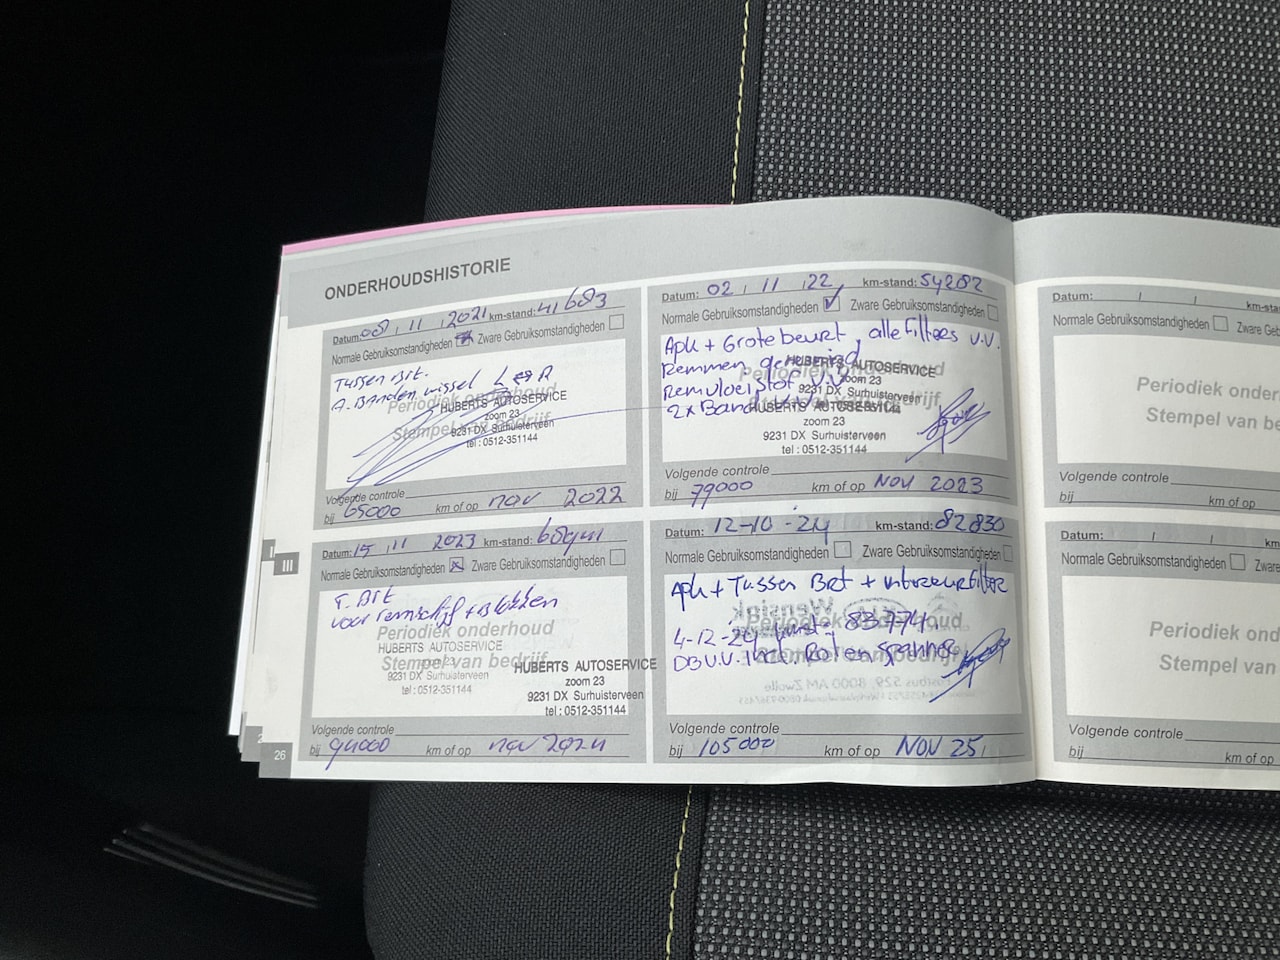 ONDERHOUDSHISTORIE
Datum: 08 , 11 , 2021 km-stand: 41683
Normale Gebruiksomstandigheden Zware Gebruiksomstandigheden
Tussen Brt.
A. Banden wissel L R
Periodiek onderhoud
Stempel van bedrijf
HUBERTS AUTOSERVICE
zoom 23
9231 DX Surhuisterveen
tel : 0512-351144
Volgende controle
bij 65000 km of op nov 2022
Datum: 02 , 11 , 22 km-stand: 54282
Normale Gebruiksomstandigheden Zware Gebruiksomstandigheden
Apk + Grote beurt, alle filters v.v.
Remmen gereinigd
Remvloeistof v.v.
2x Band
Periodiek onderhoud
HUBERTS AUTOSERVICE
zoom 23
9231 DX Surhuisterveen
HUBERTS AUTOSERVICE
zoom 23
9231 DX Surhuisterveen
tel : 0512-351144
Volgende controle
bij 79000 km of op NOV 2023
Datum: 15 , 11 2023 km-stand:
Normale Gebruiksomstandigheden Zware Gebruiksomstandigheden
T. Brt
voor remschijf + Blokken
Periodiek onderhoud
Stempel van bedrijf
HUBERTS AUTOSERVICE
9231 DX Surhuisterveen
tel : 0512-351144
HUBERTS AUTOSERVICE
zoom 23
9231 DX Surhuisterveen
tel : 0512-351144
Volgende controle
bij 94000 km of op nov 2024
Datum: 12-10-24 km-stand: 82830
Normale Gebruiksomstandigheden Zware Gebruiksomstandigheden
Apk + Tussen Brt + interieurfilter
Periodiek onderhoud
4-12-24 83774
DB v.v. incl. Rol en spanner
Volgende controle
bij 105000 km of op NOV 25
III
26
Datum: / / km-sta
Normale Gebruiksomstandigheden Zware Ge
Periodiek ond
Stempel van be
Volgende controle
bij km of op
Datum: / / km-s
Normale Gebruiksomstandigheden Zware
Periodiek ond
Stempel van
Volgende controle
bij km of op